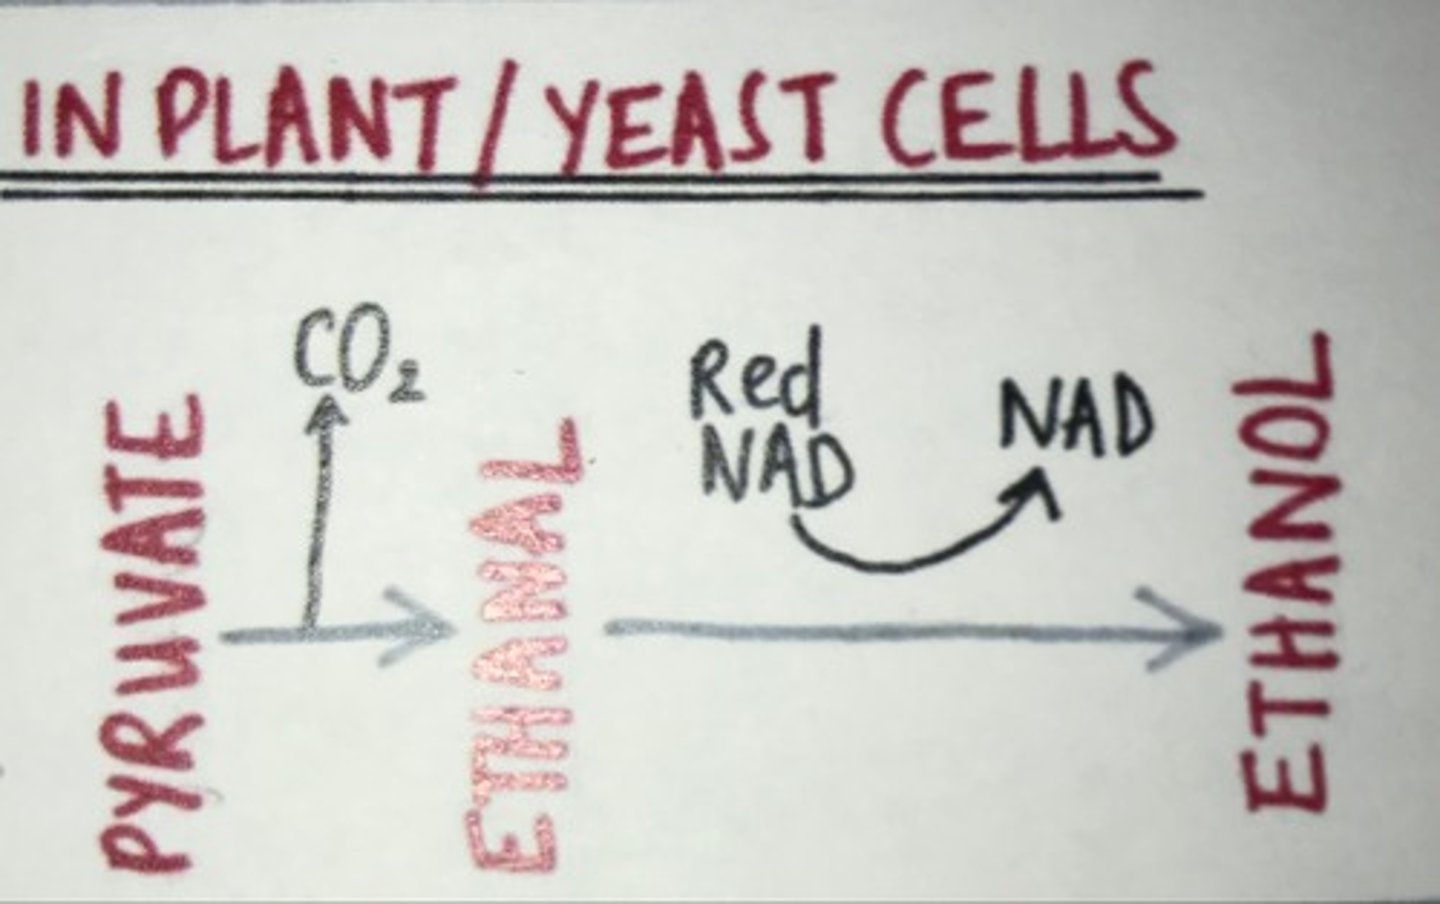 IN PLANT/YEAST CELLS
PYRUVATE
CO₂
ETHANAL
Red
NAD
NAD
ETHANOL